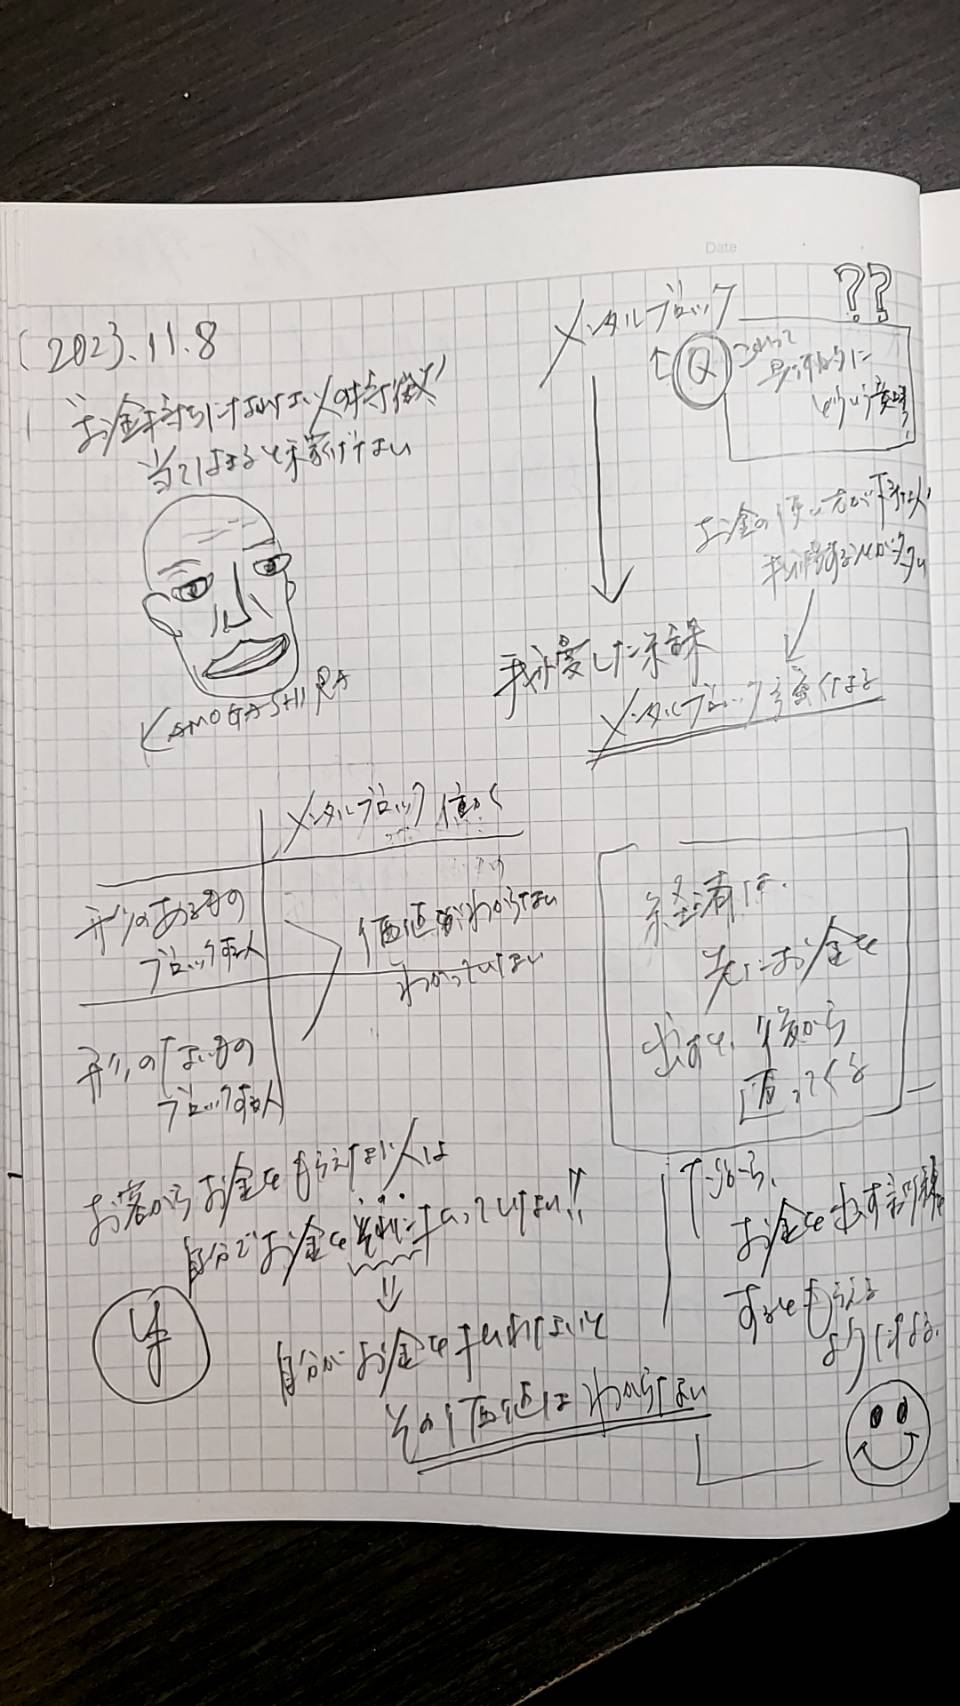 2023.11.8
"お金持ちになれない人の特徴"
当てはまると稼げない
KAMOGASHIRA
Date
メンタルブロック
??
Q
これって
具体的に
どういう意味
お金の使い方が下手な人
我慢することが多い
我慢した結果
メンタルブロック強くなる
メンタルブロック 働く
形のあるもの
ブロックする人
価値がわからない
わかっていない
形のないもの
ブロックする人
経済は、
先にお金を
出すと、後から
返ってくる
お客からお金をもらえない人は
自分でお金をそれに払っていない!!
自分がお金を払わないと
その価値はわからない
¥
だから、
お金を出す訓練
するともらえる
ようになる